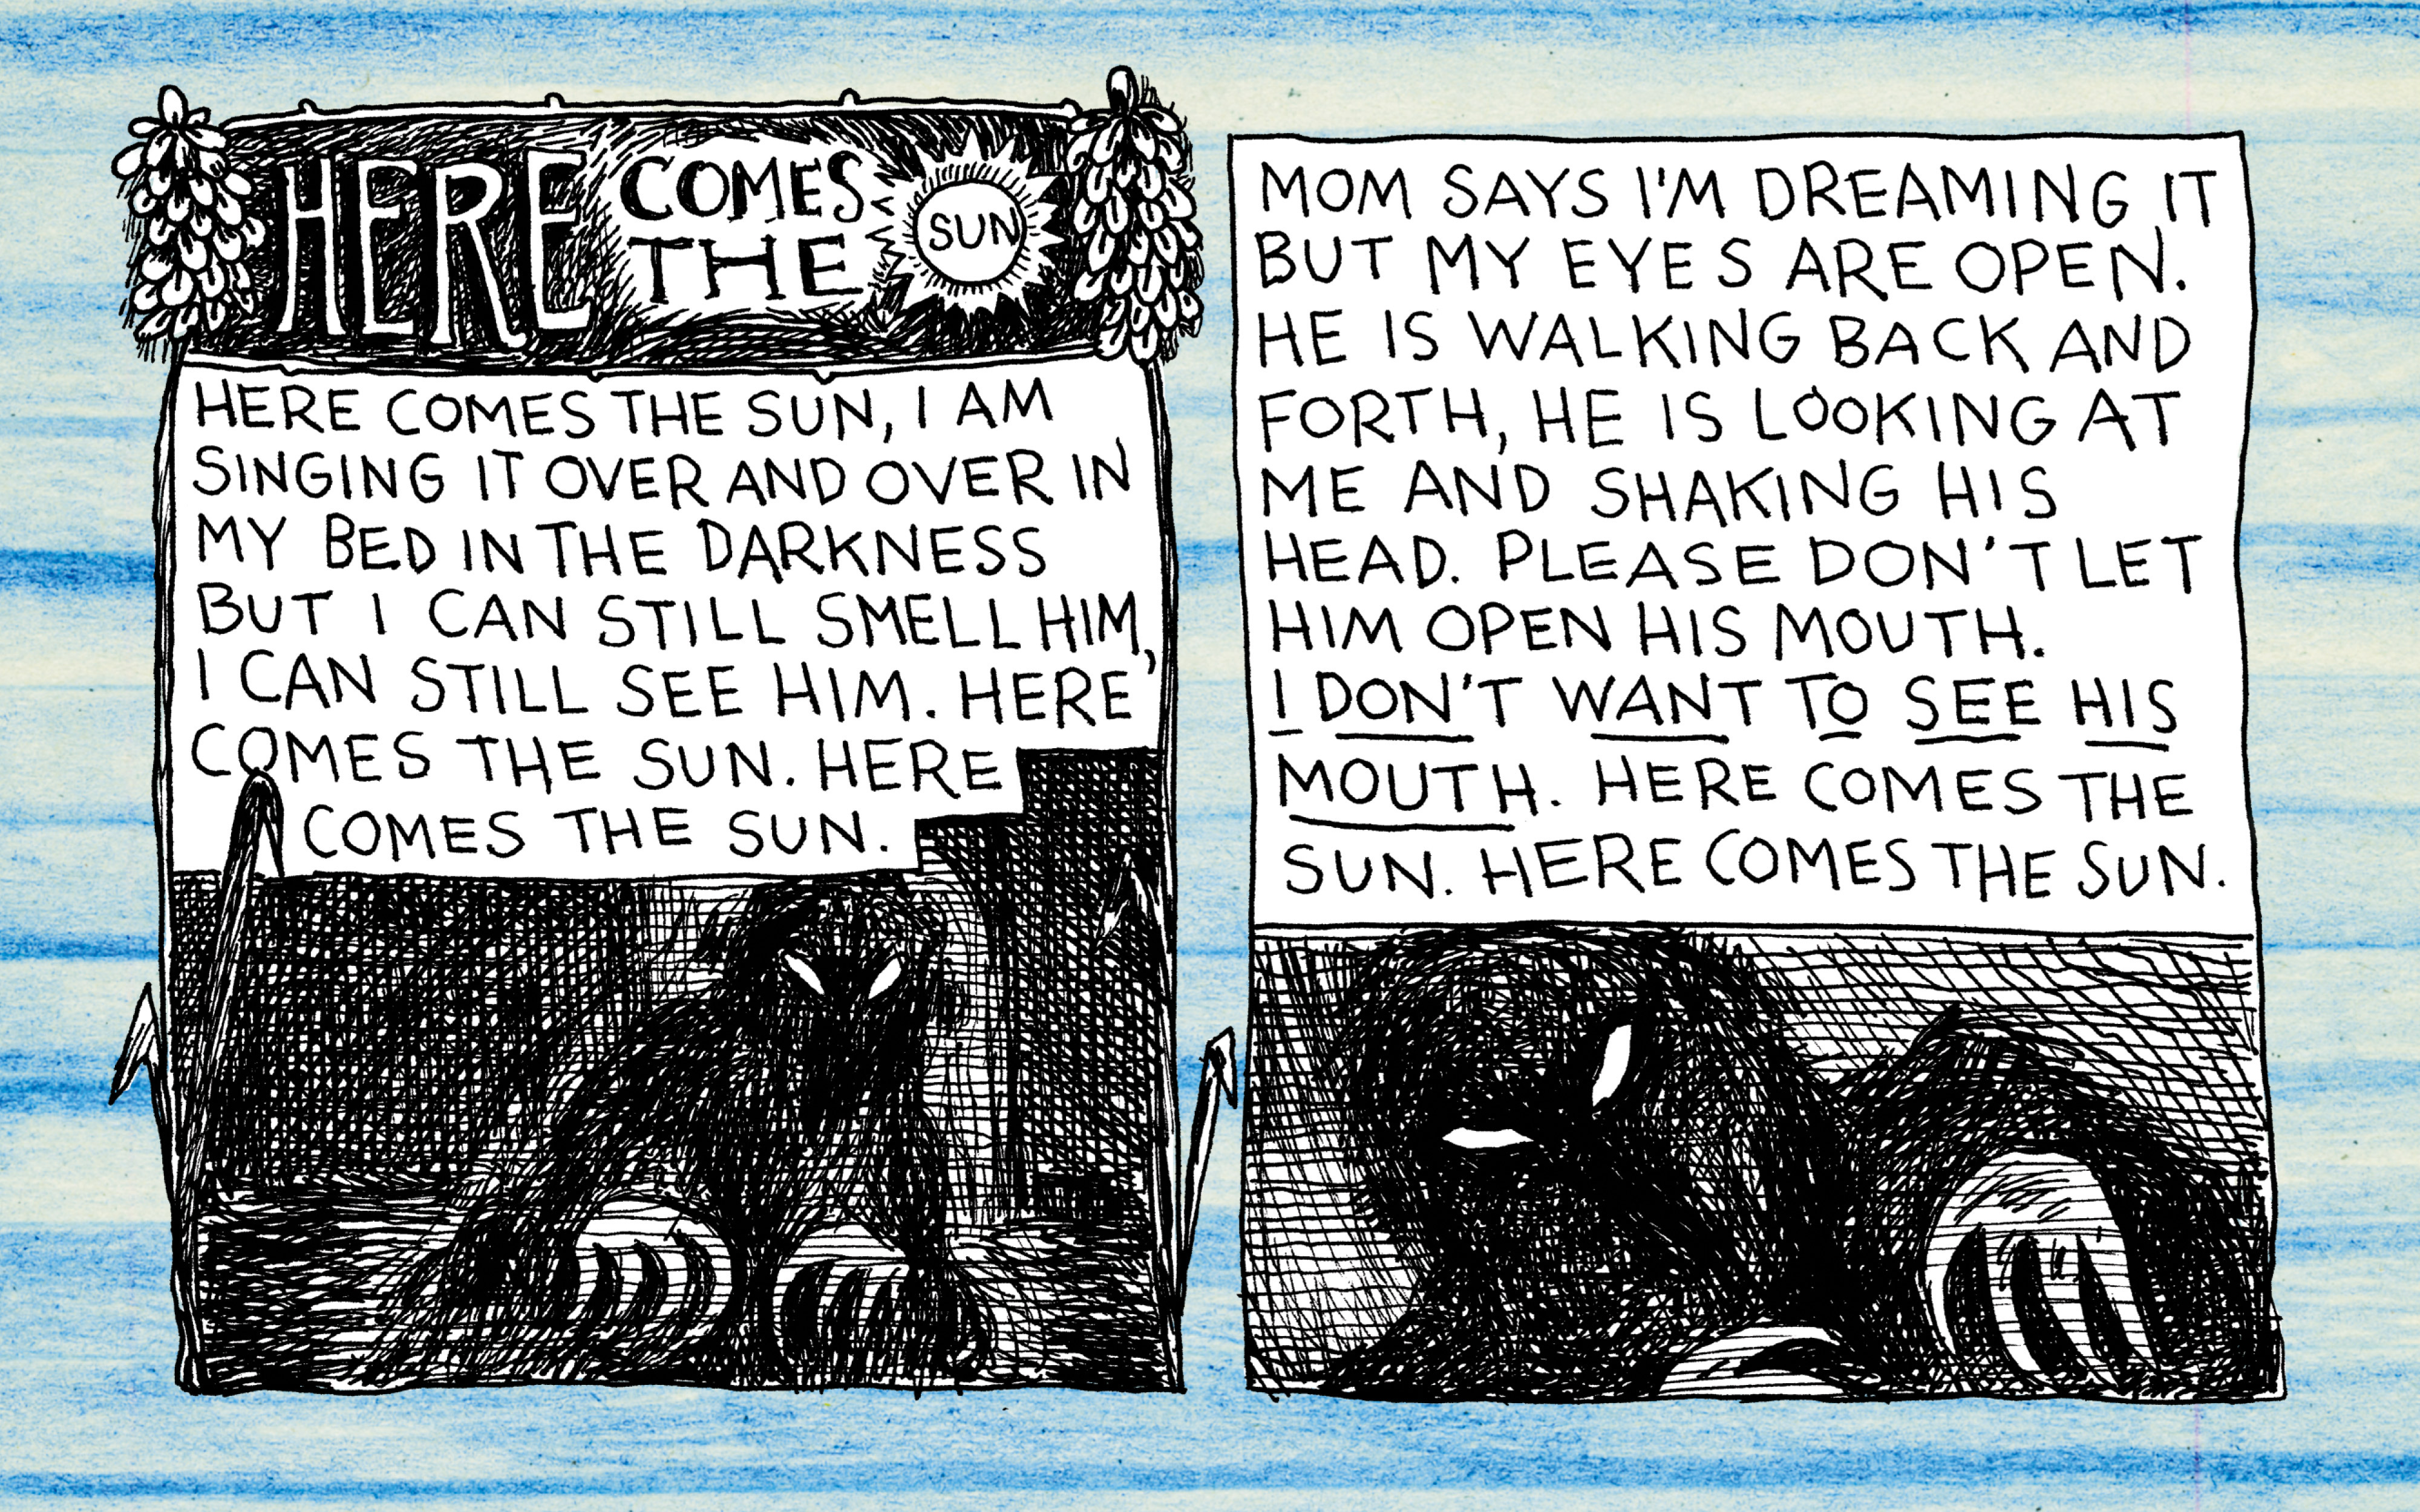 HERE COMES THE SUN
HERE COMES THE SUN, I AM
SINGING IT OVER AND OVER IN
MY BED IN THE DARKNESS
BUT I CAN STILL SMELL HIM,
I CAN STILL SEE HIM. HERE
COMES THE SUN. HERE
COMES THE SUN.
MOM SAYS I'M DREAMING IT
BUT MY EYES ARE OPEN.
HE IS WALKING BACK AND
FORTH, HE IS LOOKING AT
ME AND SHAKING HIS
HEAD. PLEASE DON'T LET
HIM OPEN HIS MOUTH.
I DON'T WANT TO SEE HIS
MOUTH. HERE COMES THE
SUN. HERE COMES THE SUN.